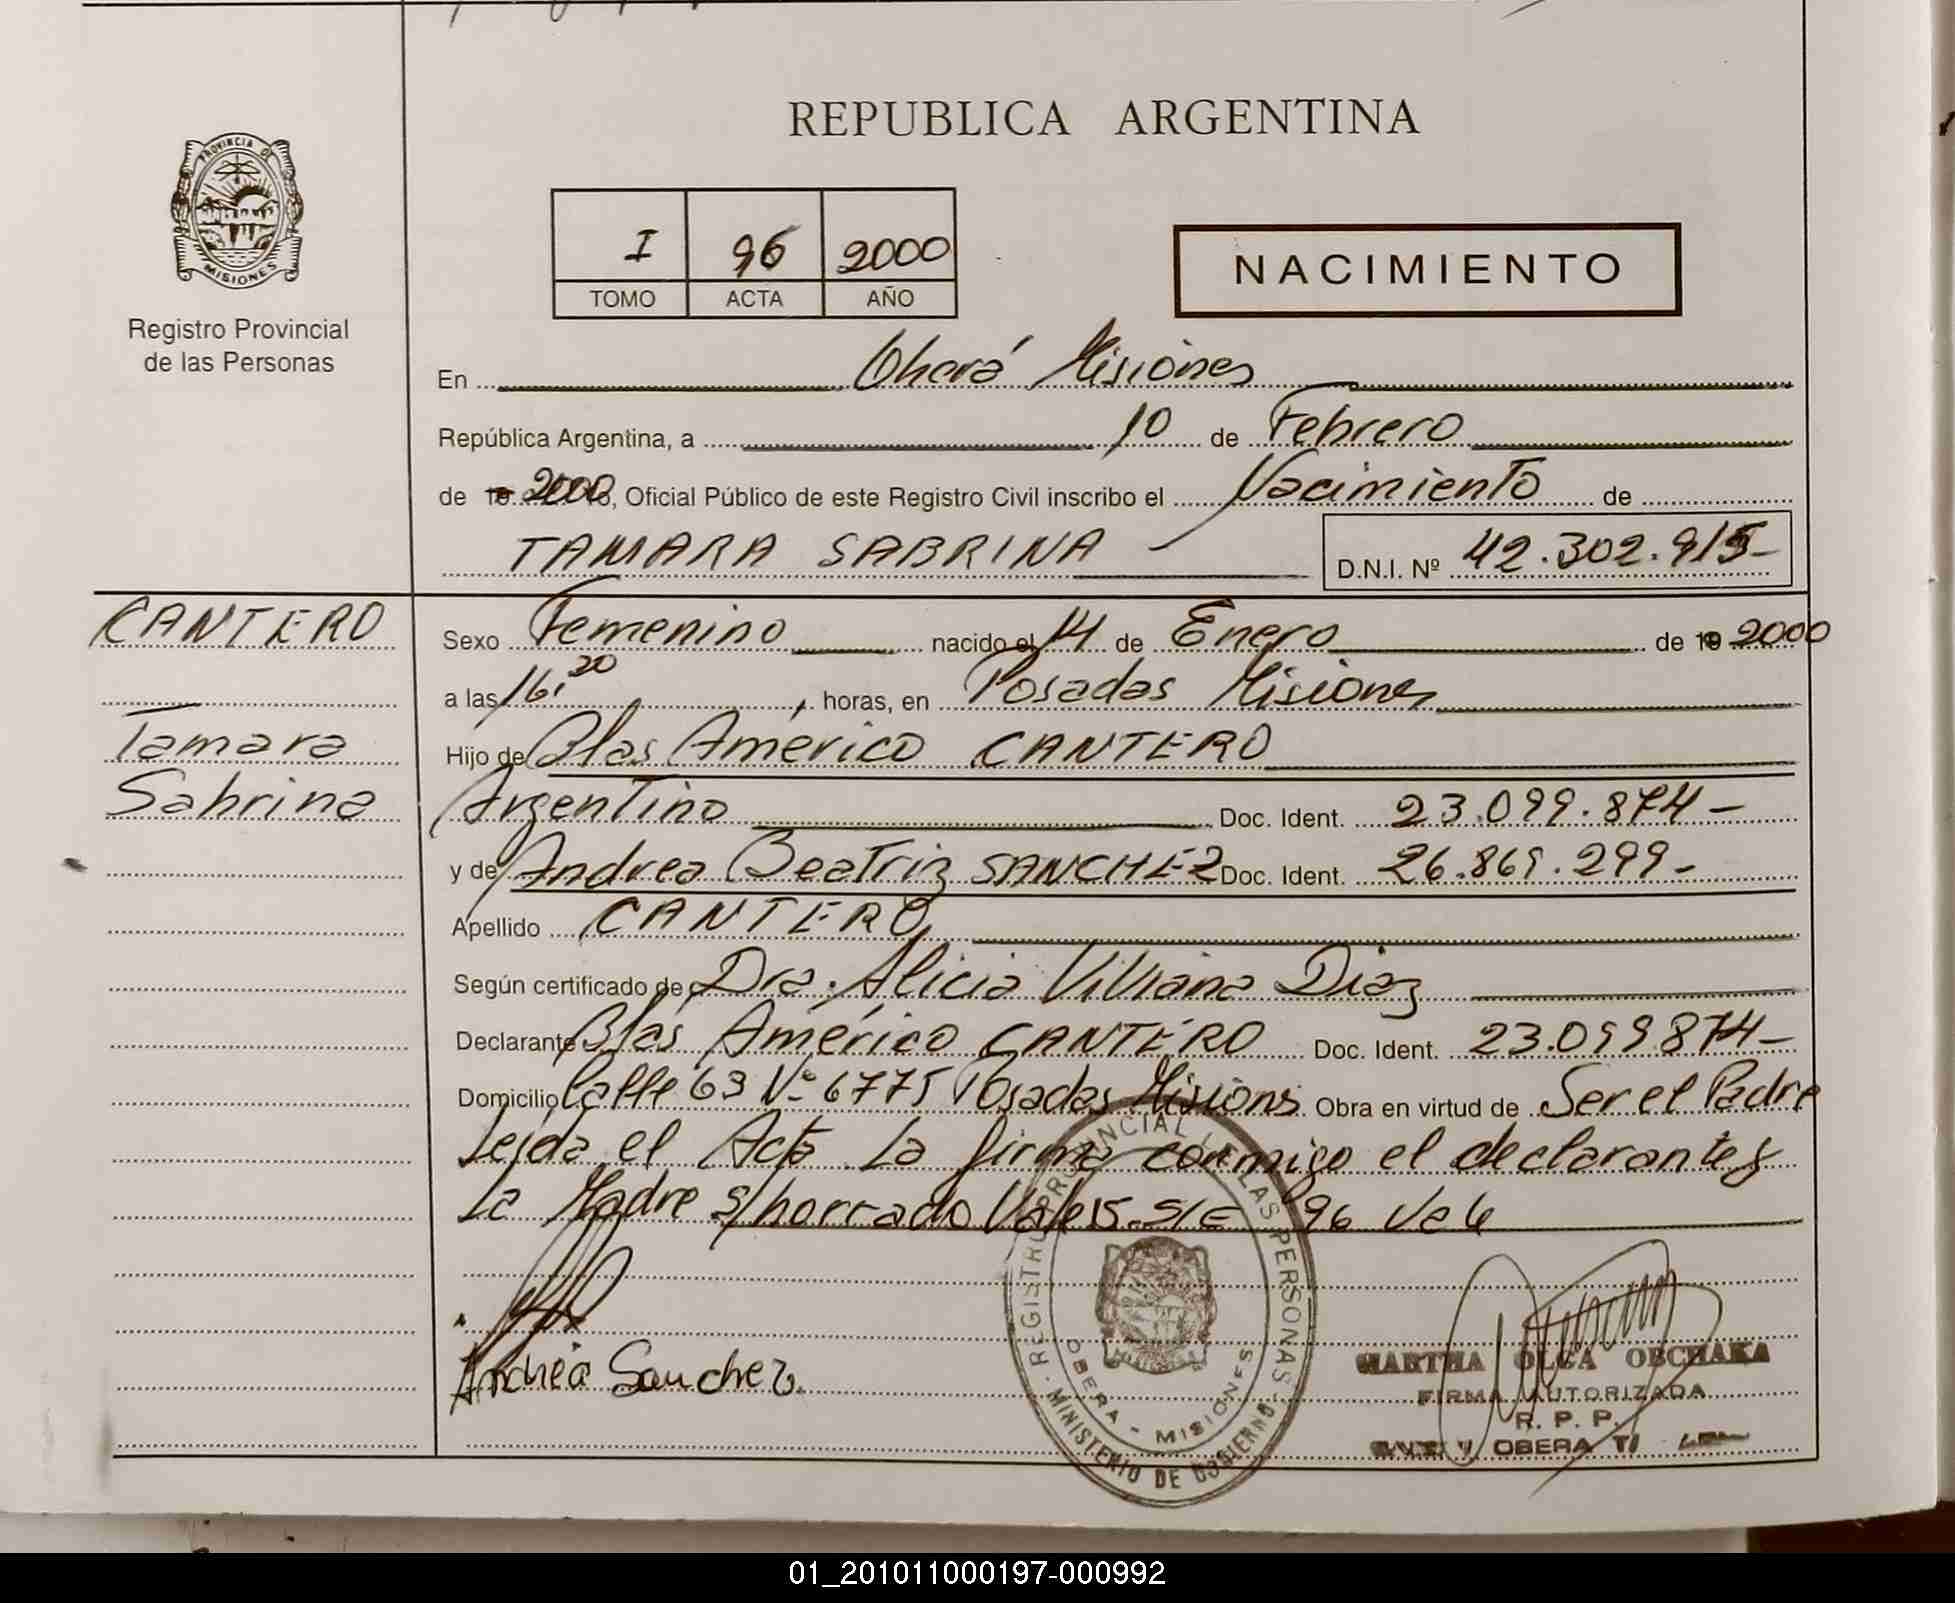 REPUBLICA ARGENTINA
PROVINCIA DE
MISIONES
Registro Provincial
de las Personas
I 96 2000
TOMO ACTA AÑO
NACIMIENTO
En Oberá Misiones
República Argentina, a 10 de Febrero
de 19 2000, Oficial Público de este Registro Civil inscribo el Nacimiento de
TAMARA SABRINA D.N.I. Nº 42.302.915-
CANTERO
Tamara
Sabrina
Sexo Femenino nacido el 14 de Enero de 19 2000
a las 16,20, horas, en Posadas Misiones
Hijo de Blas Américo CANTERO
Argentino Doc. Ident. 23.099.874-
y de Andrea Beatriz SANCHEZ Doc. Ident. 26.869.299-
Apellido CANTERO
Según certificado de Dra. Alicia Viviana Diaz
Declarante Blas Américo CANTERO Doc. Ident. 23.099874-
Domicilio Calle 63 Nº 6775 Posadas Misions Obra en virtud de Ser el Padre
Leida el Acta La firma conmigo el declarante y
La Madre s/borrado Vale 15. S/E 96 Vale
Andrea Sanchez.
REGISTRO PROVINCIAL DE LAS PERSONAS
OBERA - MISIONES
MINISTERIO DE GOBIERNO
MARTHA OLGA OBCHAKA
FIRMA AUTORIZADA
R. P. P.
OBERA
01_201011000197-000992